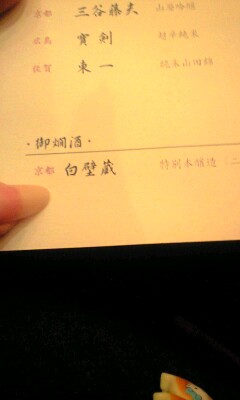 京都 三谷藤夫 山廃吟醸
広島 寳剣 超辛純米
佐賀 東一 純米山田錦
・御燗酒・
京都 白壁蔵 特別本醸造（二